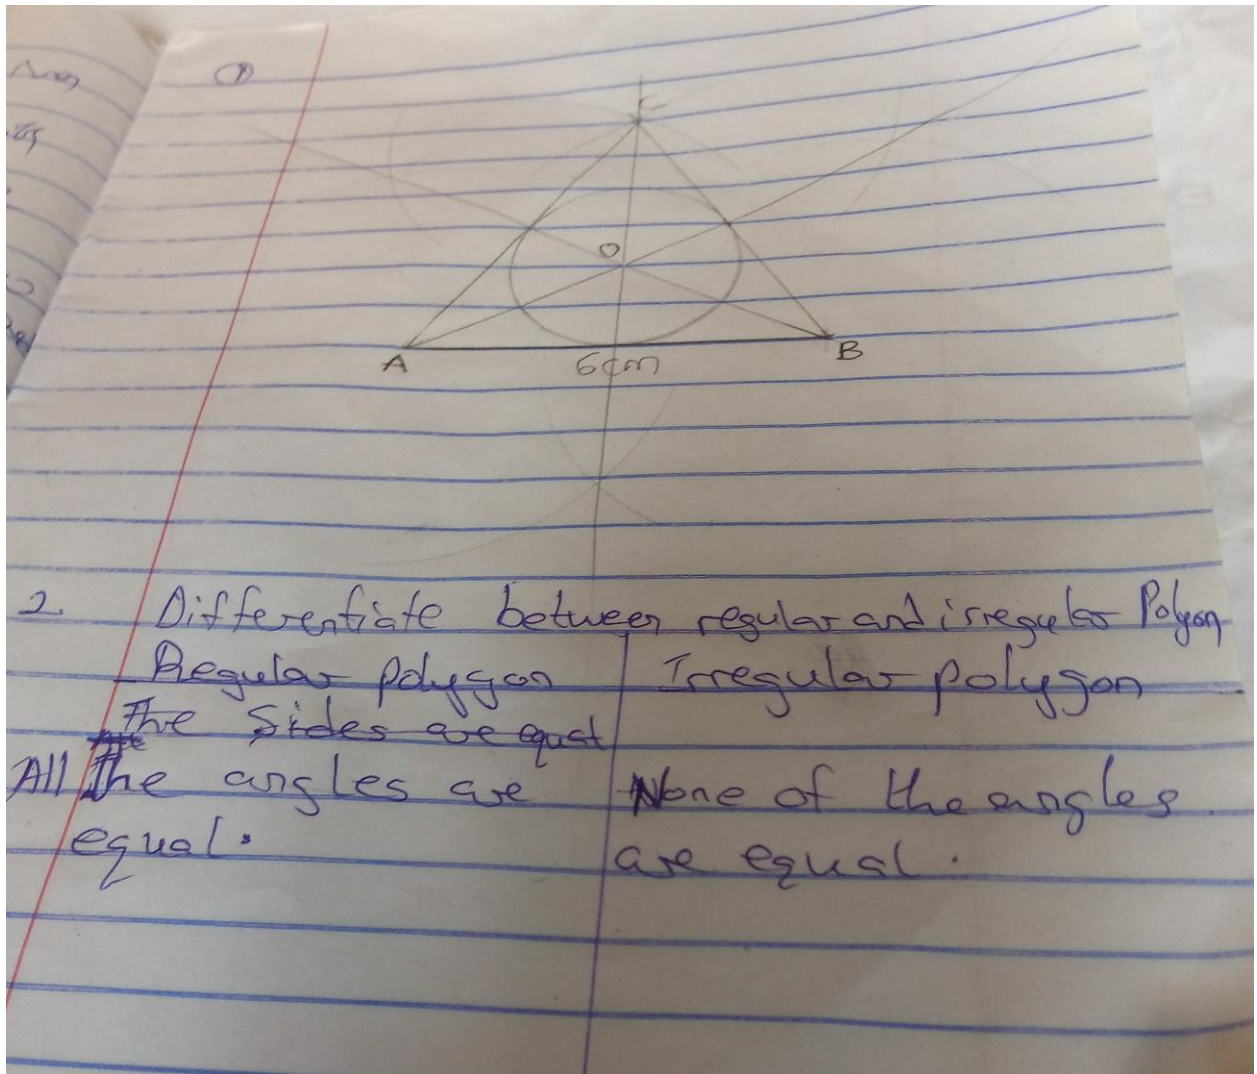 ①
C
O
A
6cm
B
2. Differentiate between regular and irregular Polygon
Regular polygon Irregular polygon
The Sides are equal
All The angles are None of the angles
equal. are equal.